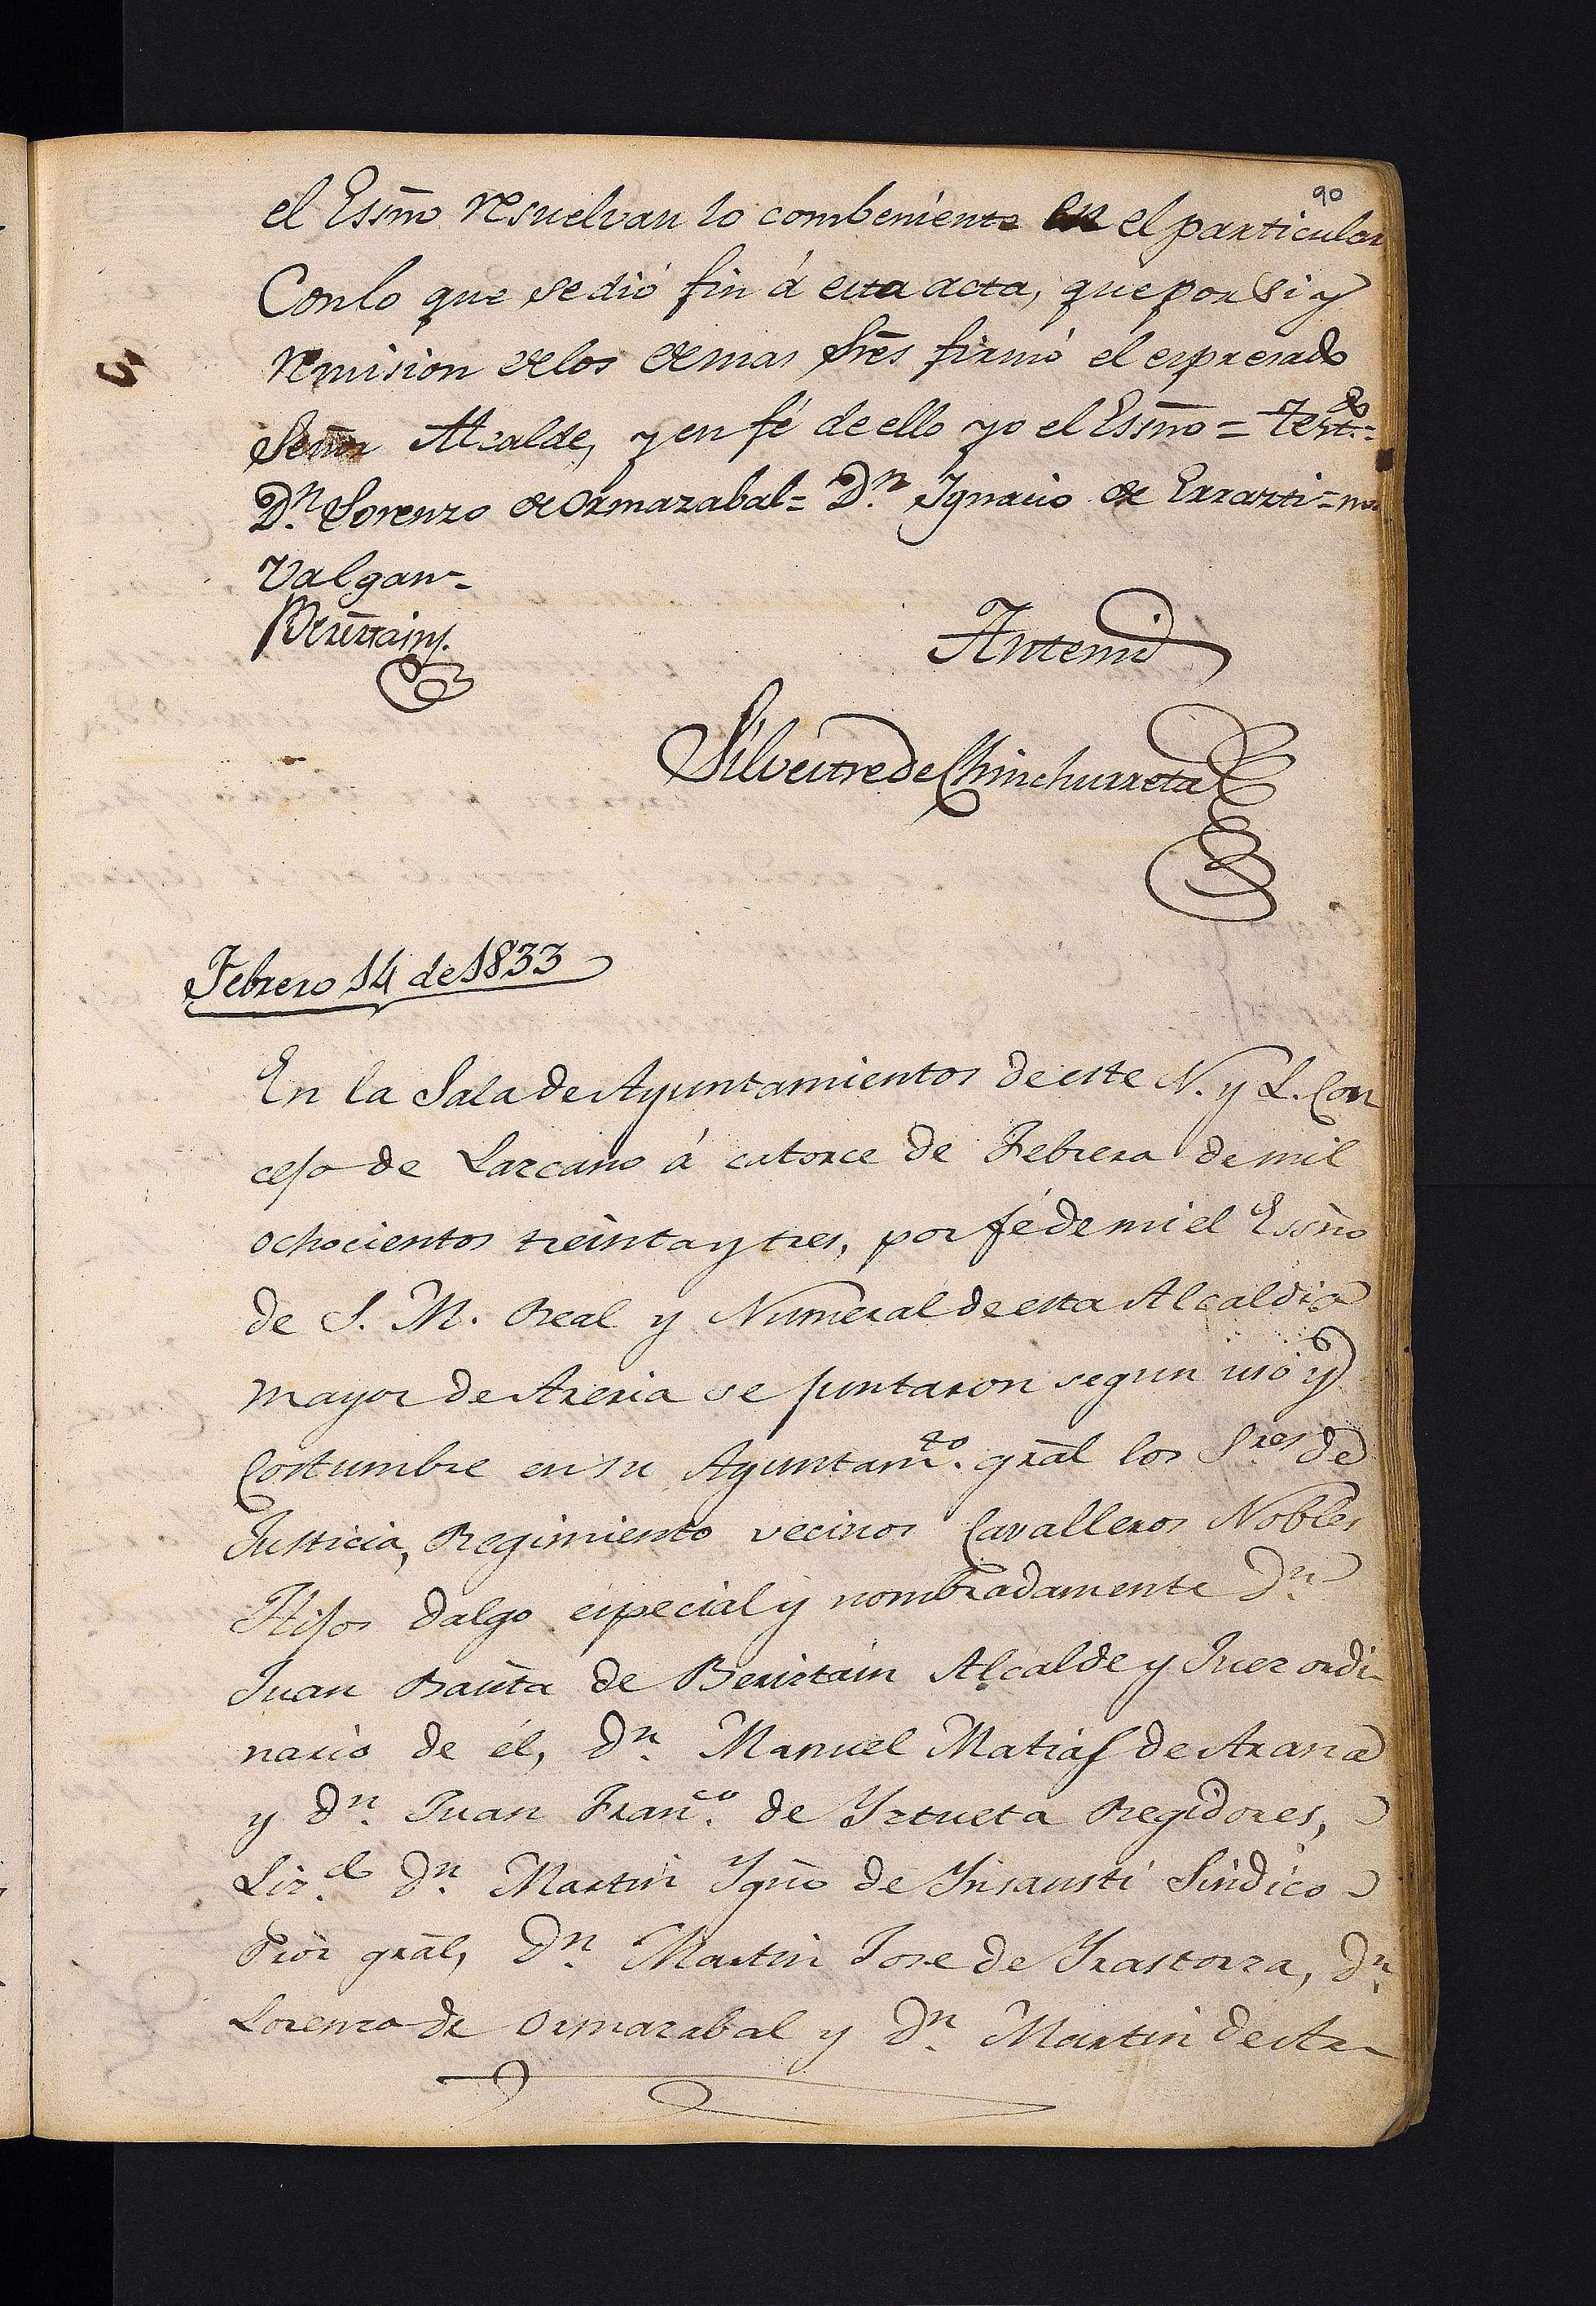 90
el Essño resuelvan lo combeniente en el particular
Con lo que se dió fin á esta acta, que por si y
remision de los demas Sres firmó el espresado
Señor Alcalde, y en fé de ello yo el Essño = Test.do=
Dn. Lorenzo de Ormazabal= Dn. Ignacio de Errazti = no
Valgan=
Beriztain.
Antemi
Silvestre de Chinchurreta
Febrero 14 de 1833
En la Sala de Ayuntamientos de este N. y L. Con
cejo de Lazcano á catorce de Febrero de mil
ochocientos treinta y tres, por fé de mi el Essño
de S. M. Real y Numeral de esta Alcaldia
mayor de Areria se juntaron segun uso y
Costumbre en su Ayuntam.to grãl los Sres de
Justicia, Regimiento vecinos Cavalleros Nobles
Hijos dalgo especial y nombradamente Dn.
Juan Bauta de Beriztain Alcalde y Juez ordi-
nario de él, Dn. Manuel Matias de Arana
y Dn. Juan Fran.co de Yztueta Regidores,
Liz.do Dn. Martin Ygño de Ynsausti Sindico
Pror grãl, Dn. Martin Jose de Yrastorza, Dn.
Lorenzo de Ormazabal y Dn. Martin de Ar-